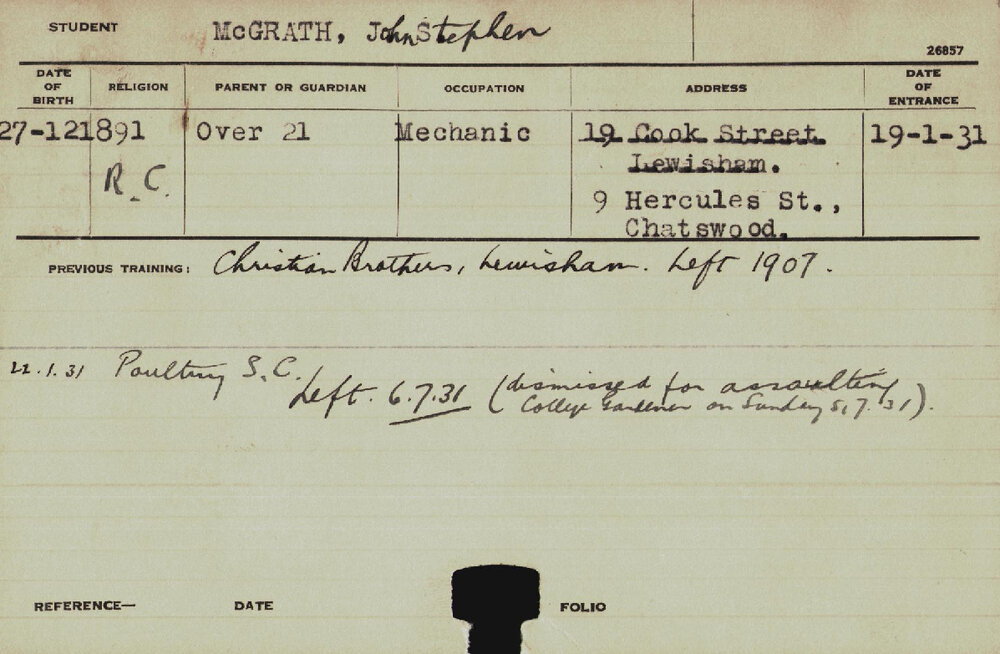 STUDENT McGRATH, John Stephen
26857
DATE OF BIRTH RELIGION PARENT OR GUARDIAN OCCUPATION ADDRESS DATE OF ENTRANCE
27-12 1891 Over 21 Mechanic 19 Cook Street 19-1-31
Lewisham.
R.C. 9 Hercules St.,
Chatswood.
PREVIOUS TRAINING: Christian Brothers, Lewisham. Left 1907.
22.1.31 Poultry S.C.
Left. 6.7.31 (dismissed for assaulting
College Gardener on Sunday 5.7.31).
REFERENCE— DATE FOLIO